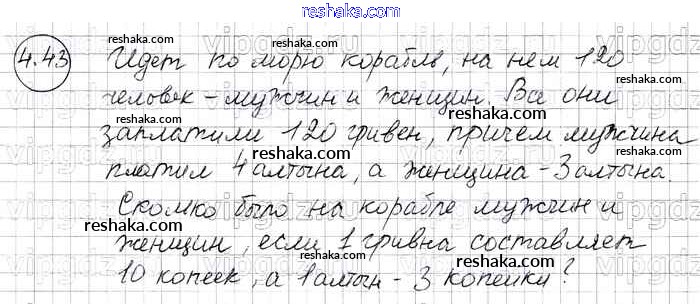 reshaka.com
4.43 Идет по морю корабль, на нем 120
человек - мужчин и женщин. Все они
заплатили 120 гривен, причем мужчина
платил 4 алтына, а женщина - 3 алтына.
Сколко было на корабле мужчин и
женщин, если 1 гривна составляет
10 копеек, а 1 алтын - 3 копейки?
reshaka.com